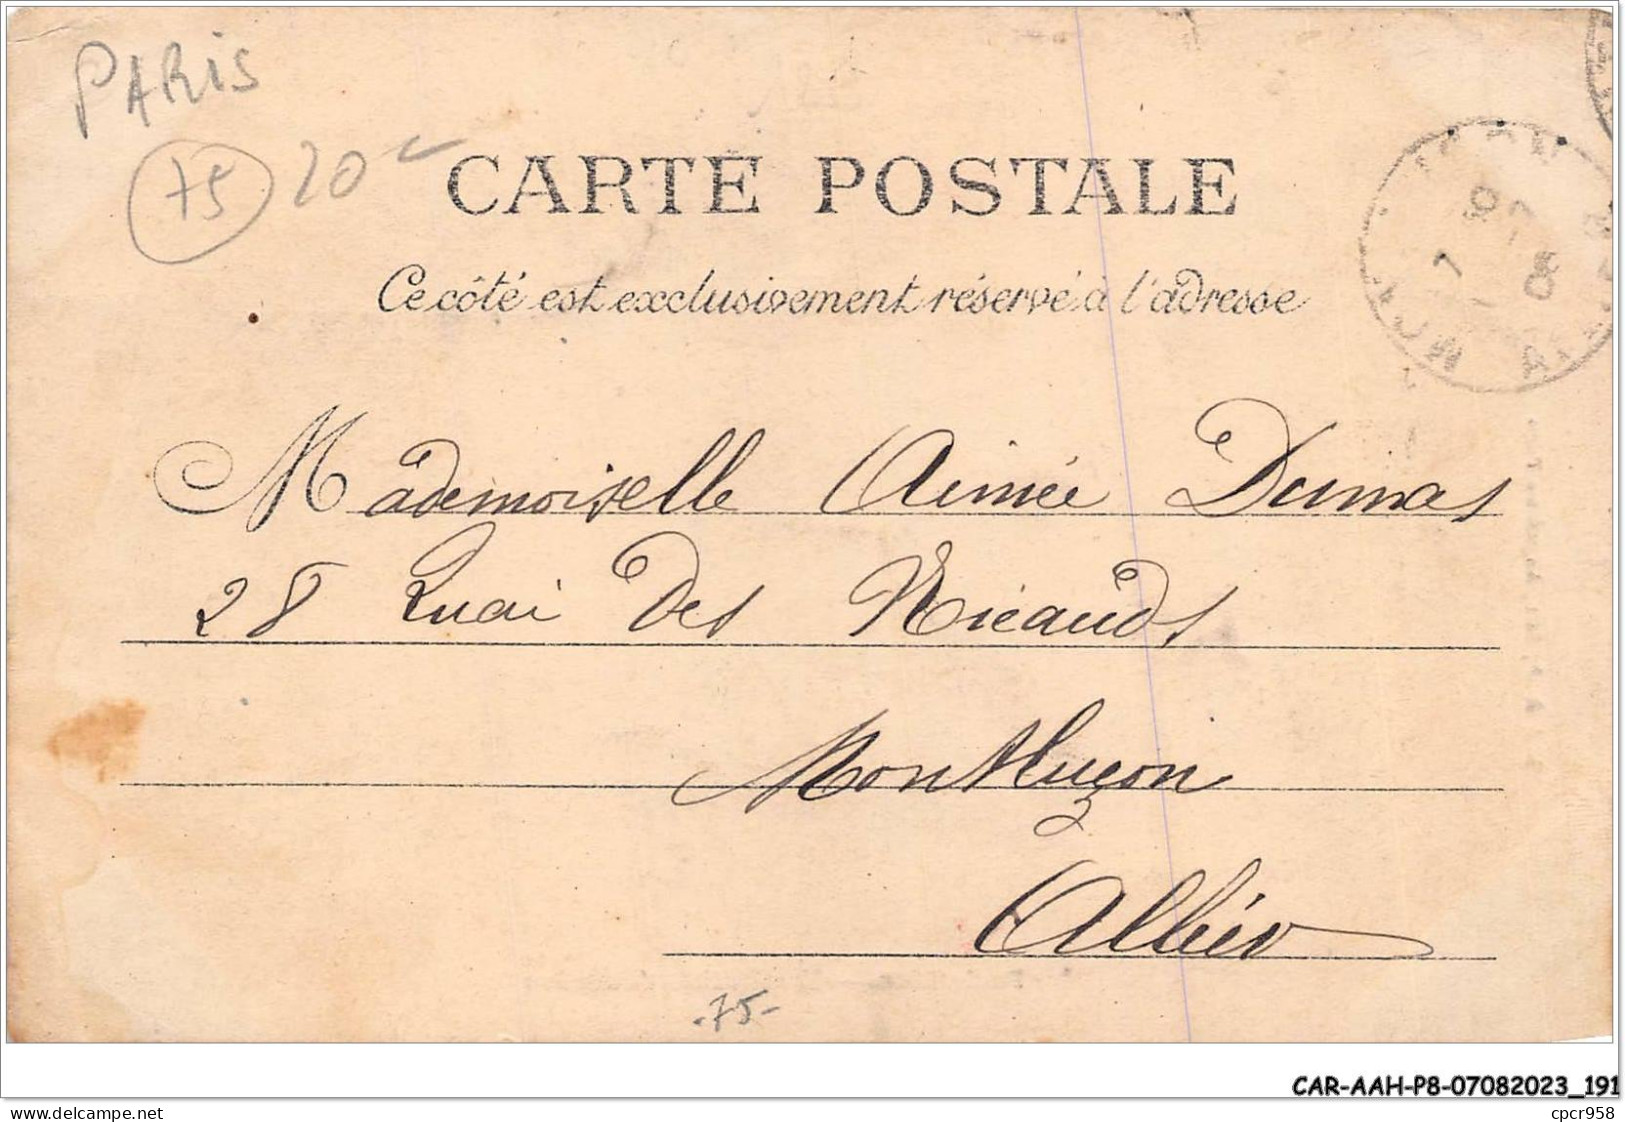 PARIS
75 20
CARTE POSTALE
Ce côté est exclusivement réservé à l'adresse
Mademoiselle Aimée Dumas
28 Quai Des Nicauds
Montluçon
Allier
-75-
CAR-AAH-P8-07082023_191
delcampe.net
cpcr958